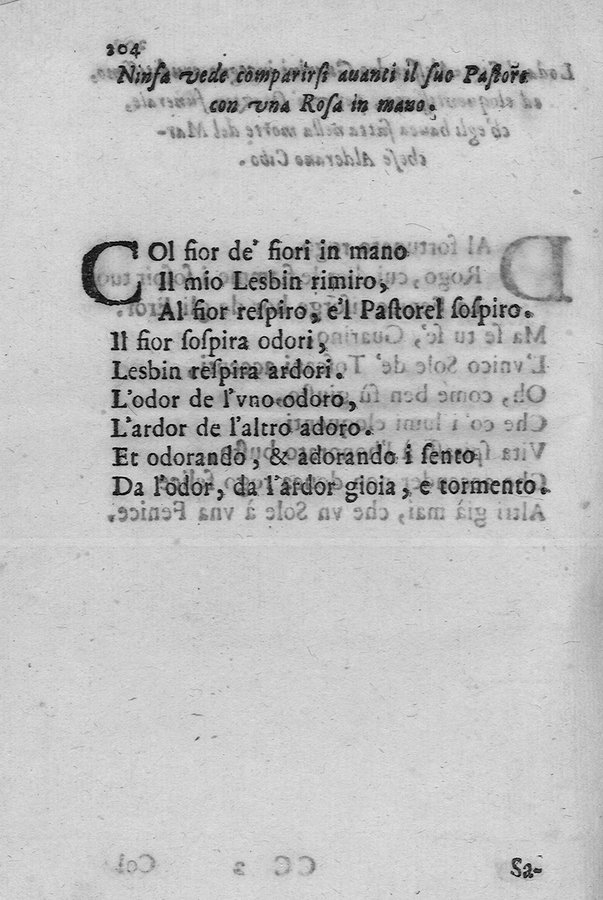 204
Ninfa vede comparirſi auanti il ſuo Paſtore
con vna Roſa in mano.
COl fior de' fiori in mano
Il mio Lesbin rimiro,
Al fior reſpiro, e'l Paſtorel ſoſpiro.
Il fior ſoſpira odori,
Lesbin reſpira ardori.
L'odor de l'vno odoro,
L'ardor de l'altro adoro.
Et odorando, & adorando i ſento
Da l'odor, da l'ardor gioia, e tormento.
Sa-